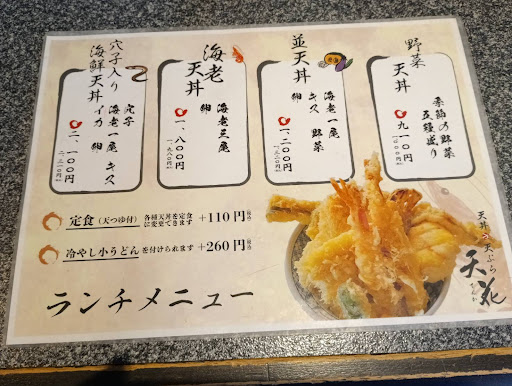 野菜
天丼
季節の野菜
五種盛り
九一〇円
並天丼
海老一尾
キス 野菜
卵
一、二〇〇円
海老
天丼
海老三尾
卵
一、八〇〇円
穴子入り
海鮮天丼
穴子
海老一尾 キス
イカ 卵
二、一〇〇円
定食(天つゆ付) 各種天丼を定食に変更できます +110円
冷やし小うどんを付けられます +260円
ランチメニュー
天丼・天ぷら
天花